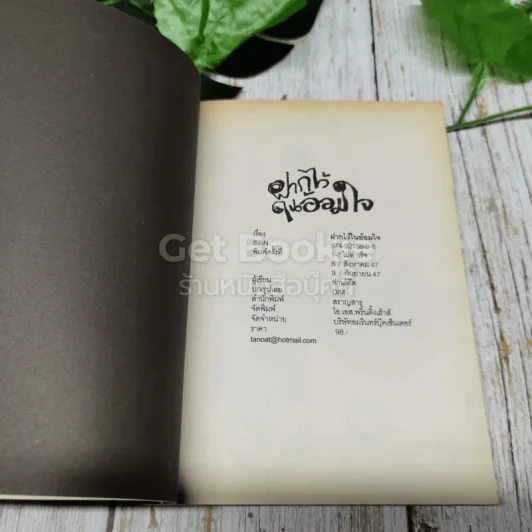 ฝากไว้
ในอ้อมใจ
เรื่อง ฝากไว้ในอ้อมใจ
ISBN
พิมพ์ครั้งที่ 1-7 ไม่สำเร็จ
8 / สิงหาคม 47
9 / กันยายน 47
ผู้เขียน
สำนักพิมพ์
จัดพิมพ์ โอ.เอส.พริ้นติ้งเฮ้าส์
จัดจำหน่าย บริษัทอมรินทร์บุ๊คเซ็นเตอร์
ราคา 98.-
tanoat@hotmail.com
Get Bookie
ร้านหนังสือบุ๊คกี้